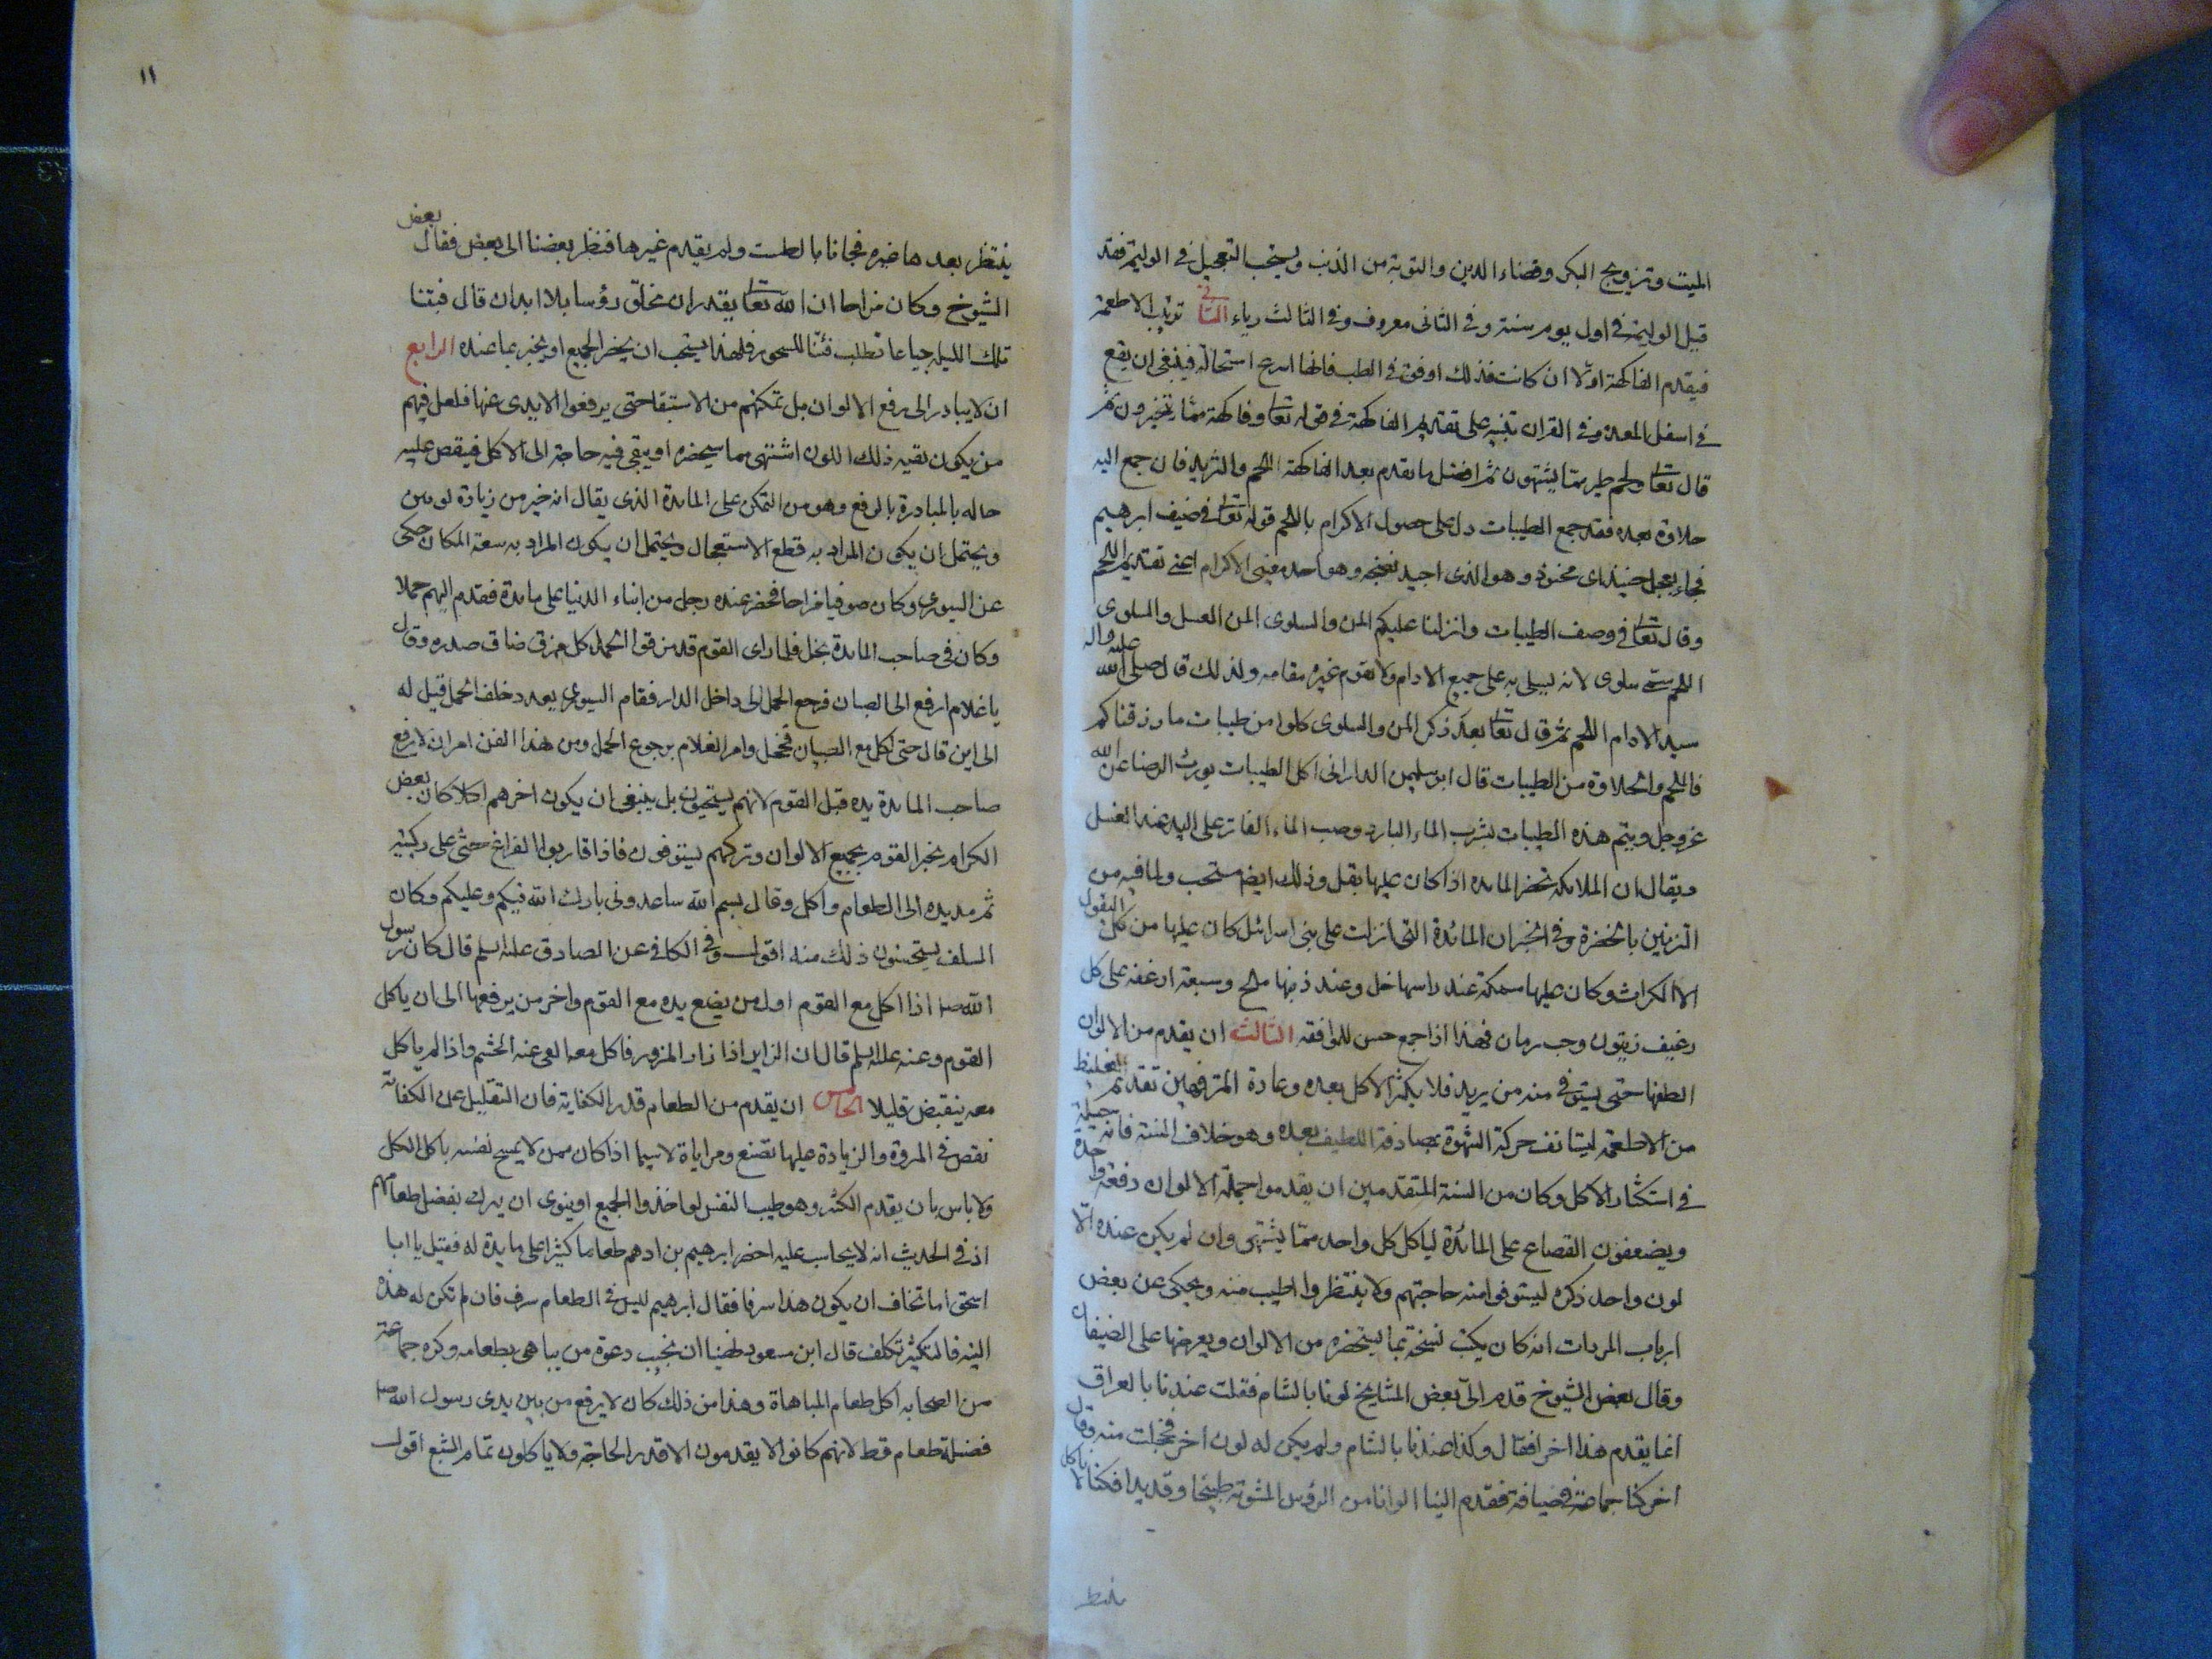 الميت وتزويج البكر وقضاء الدين والتوبة من الذنب ويستحب التعجيل في الوليمة فقد
قيل الوليمة في اول يوم سنة وفي الثاني معروف وفي الثالث رياء الثاني ترتيب الاطعمة
فيقدم الفاكهة اولا ان كانت فذلك اوفق في الطب فانها اسرع استحالة فينبغي ان يقع
في اسفل المعدة وفي القران تنبيه على تقديم الفاكهة في قوله تعا وفاكهة مما يتخيرون ثم
قال تعا ولحم طير مما يشتهون ثم افضل ما يقدم بعد الفاكهة اللحم والثريد فان جمع اليه
حلاوة بعده فقد جمع الطيبات دل على حصول الاكرام باللحم قوله تعا في ضيف ابرهيم
فجاء بعجل حنيذ اى محنوذ وهو الذى اجيد نضجه وهو احد معنيى الاكرام اعنى تقديم اللحم
وقال تعا في وصف الطيبات وانزلنا عليكم المن والسلوى المن العسل والسلوى
اللحم سمى سلوى لانه يسلى به على جميع الادام ولا يقوم غيره مقامه ولذلك قال صلى الله عليه واله
سيد الادام اللحم ثم قال تعا بعد ذكر المن والسلوى كلوا من طيبات ما رزقناكم
فاللحم والحلاوة من الطيبات قال ابو سليمن الدارانى اكل الطيبات يورث الرضا عن الله
عز وجل ويتم هذه الطيبات بشرب الماء البارد وصب الماء الفاتر على اليد عند الغسل
ويقال ان الملائكة تحضر المائدة اذا كان عليها بقل وذلك ايضا مستحب ولما فيه من
التزيين بالخضرة وفي الخبر ان المائدة التى انزلت على بنى اسرائل كان عليها من كل البقول
الا الكراث وكان عليها سمكة عند راسها خل وعند ذنبها ملح وسبعة ارغفة على كل
رغيف زيتون وحب رمان فهذا اذا جمع حسن للموافقة الثالث ان يقدم من الالوان
الطفها حتى يستوفى منه من يريد فلا يكثر الاكل بعده وعادة المترفهين تقديم الغليظ
من الاطعمة ليستانف حركة الشهوة بمصادفة اللطيف بعده وهو خلاف السنة فانه حيلة
في استكثار الاكل وكان من السنة المتقدمين ان يقدموا جملة الالوان دفعة واحدة
ويضعفون القصاع على المائدة لياكل كل واحد مما يشتهى وان لم يكن عنده الا
لون واحد ذكره ليستوفوا منه حاجتهم ولا ينتظروا اطيب منه ويحكى عن بعض
ارباب المروات انه كان يكتب نسخة بما يستحضره من الالوان ويعرضها على الضيفان
وقال بعض الشيوخ قدم الى بعض المشايخ لونا بالشام فقلت عندنا بالعراق
انما يقدم هذا اخرا فقال وكذا عندنا بالشام ولم يكن له لون اخر فخجلت منه وقال
اخر كنا جماعة في ضيافة فقدم الينا الوانا من الرؤس المشوية طبيخا وقديدا فكنا لا ناكل
ينتظر بعدها غيره فجانا بالطست ولم يقدم غيرها فنظر بعضنا الى بعض فقال بعض
الشيوخ وكان مزاحا ان الله تعا يقدر ان يخلق رؤسا بلا ابدان قال فبتنا
تلك الليلة جياعا نطلب فتيتا للسحور فلهذا يستحب ان يحضر الجميع او يخبر بما عنده الرابع
ان لا يبادر الى رفع الالوان بل تمكنهم من الاستيفا حتى يرفعوا الايدى عنها فلعل فيهم
من يكون بقيه ذلك اللون اشتهى مما سيحضره او يبقى فيه حاجة الى الاكل فينقص عليه
حاله بالمبادرة بالرفع وهو من التمكن على المايدة الذى يقال انه خير من زيادة لونين
ويحتمل ان يكون المراد به قطع الاستعجال ويحتمل ان يكون المراد به سعة المكان حكى
عن السيورى وكان صوفيا مزاحا فحضر عنده رجل من ابناء الدنيا على مائدة فقدم اليهم حملا
وكان في صاحب المائدة بخل فلما راى القوم قد مزقوا الحمل كل ممزق ضاق صدره وقال
يا غلام ارفع الى الصبيان فرجع الحمل الى داخل الدار فقام السيورى يعدو خلف الحمل قيل له
الى اين قال حتى اكل مع الصبيان فخجل وامر الغلام برجوع الحمل ومن هذا الفن امر ان لا يرفع
صاحب المائدة يده قبل القوم لانهم يستحيون بل ينبغى ان يكون اخرهم اكلا كان بعض
الكرام يخبر القوم بجميع الالوان وتركهم يستوفون فاذا قاربوا الفراغ جثى على ركبتيه
ثم مد يده الى الطعام واكل وقال بسم الله ساعدونى بارك الله فيكم وعليكم وكان
السلف يستحسنون ذلك منه اقول وفي الكافى عن الصادق عليه السلم قال كان رسول
الله ص اذا اكل مع القوم اول من يضع يده مع القوم واخر من يرفعها الى ان ياكل
القوم وعنه عليه السلم قال ان الزاير اذا زار المزور فاكل معه القى عنه الحشم واذا لم ياكل
معه ينقبض قليلا الخامس ان يقدم من الطعام قدر الكفاية فان التقليل عن الكفاية
نقص في المروة والزيادة عليها تصنع ومراياة لاسيما اذا كان ممن لا يسمح نفسه باكل الكل
ولا باس بان يقدم الكثير وهو طيب النفس لو اخذوا الجميع او ينوى ان يترك بفضل طعامهم
اذ في الحديث انه لا يحاسب عليه احضر ابرهيم بن ادهم طعاما كثيرا على مايدة له فقيل يا ابا
اسحق اما تخاف ان يكون هذا سرفا فقال ابرهيم ليس في الطعام سرف فان لم تكن له هذه
النية فالتكثير تكلف قال ابن مسعود نهينا ان نجيب دعوة من يباهى بطعامه وكره جماعة
من الصحابه اكل طعام المباهاة وهذا من ذلك كان لا يرفع من بين يدى رسول الله ص
فضلة طعام قط لانهم كانوا لا يقدمون الا قدر الحاجة ولا ياكلون تمام الشبع اقول
١١